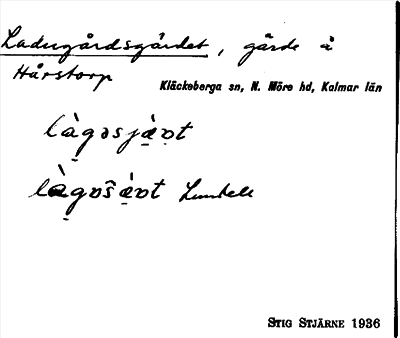 Ladugårdsgärdet, gärde å
Hårstorp
Kläckeberga sn, N. Möre hd, Kalmar län
Lundell
STIG STJÄRNE 1936